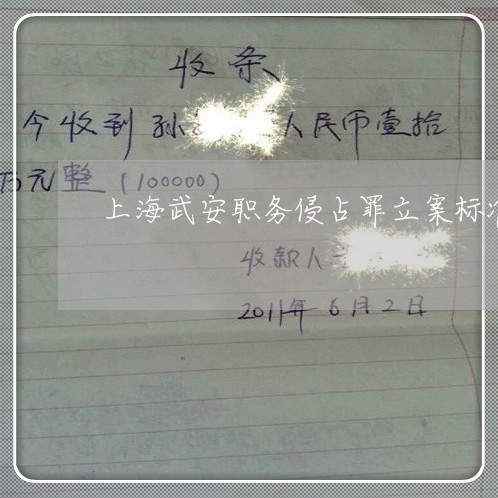 收条
今收到孙 人民币壹拾
万元整(100000)
上海武安职务侵占罪立案标准
收款人
2011年6月2日